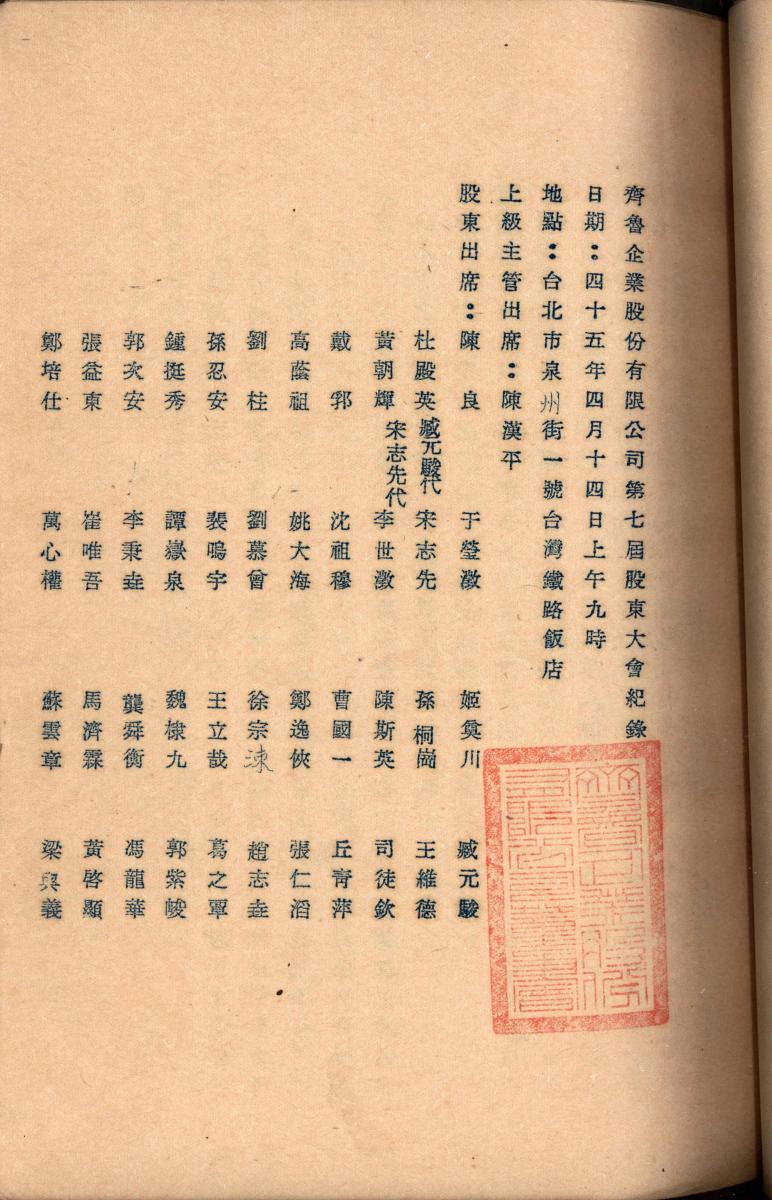 齊魯企業股份有限公司第七屆股東大會紀錄
日期：四十五年四月十四日上午九時
地點：台北市泉州街一號台灣鐵路飯店
上級主管出席：陳漢平
股東出席：陳良 于瑩澂 姬奠川 臧元駿
杜殿英 臧元駿代 宋志先 孫桐崗 王維德
黃朝輝 宋志先代 李世澂 陳斯英 司徒欽
戴郛 沈祖穆 曹國一 丘青萍
高蔭祖 姚大海 鄭逸俠 張仁滔
劉柱 劉慕曾 徐宗涑 趙志垚
孫忍安 裴鳴宇 王立哉 葛之覃
鍾挺秀 譚嶽泉 魏棣九 郭紫峻
郭次安 李秉垚 龔舜衡 馮龍華
張益東 崔唯吾 馬濟霖 黃啓顯
鄭培仕 萬心權 蘇雲章 梁與義